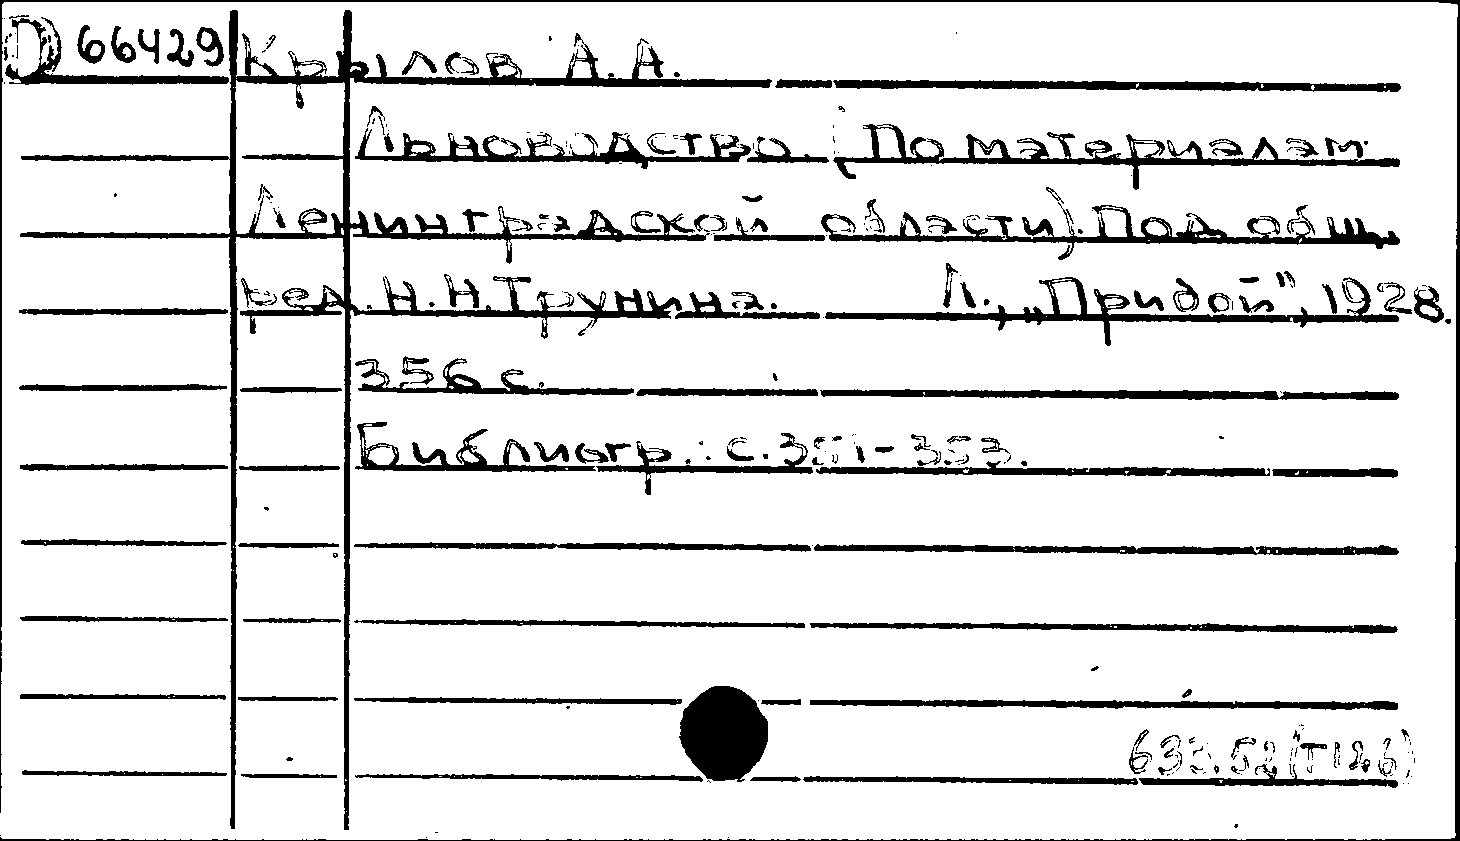 66429 Крылов А.А.
Льноводство. (По материалам
Ленинградской области). Под общ.
ред. Н.Н.Трунина. Л., „Прибой", 1928.
356 с.
Библиогр.: с.351-353.
633.52(Т126)